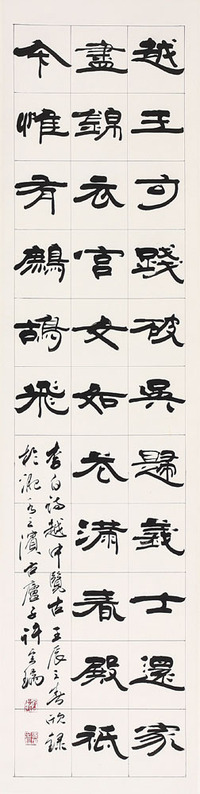 越王句踐破吳歸義士還家
盡錦衣宮女如花滿春殿祗
今惟有鷓鴣飛
李白詩越中覽古壬辰之春欣錄
於之濱古廬子許